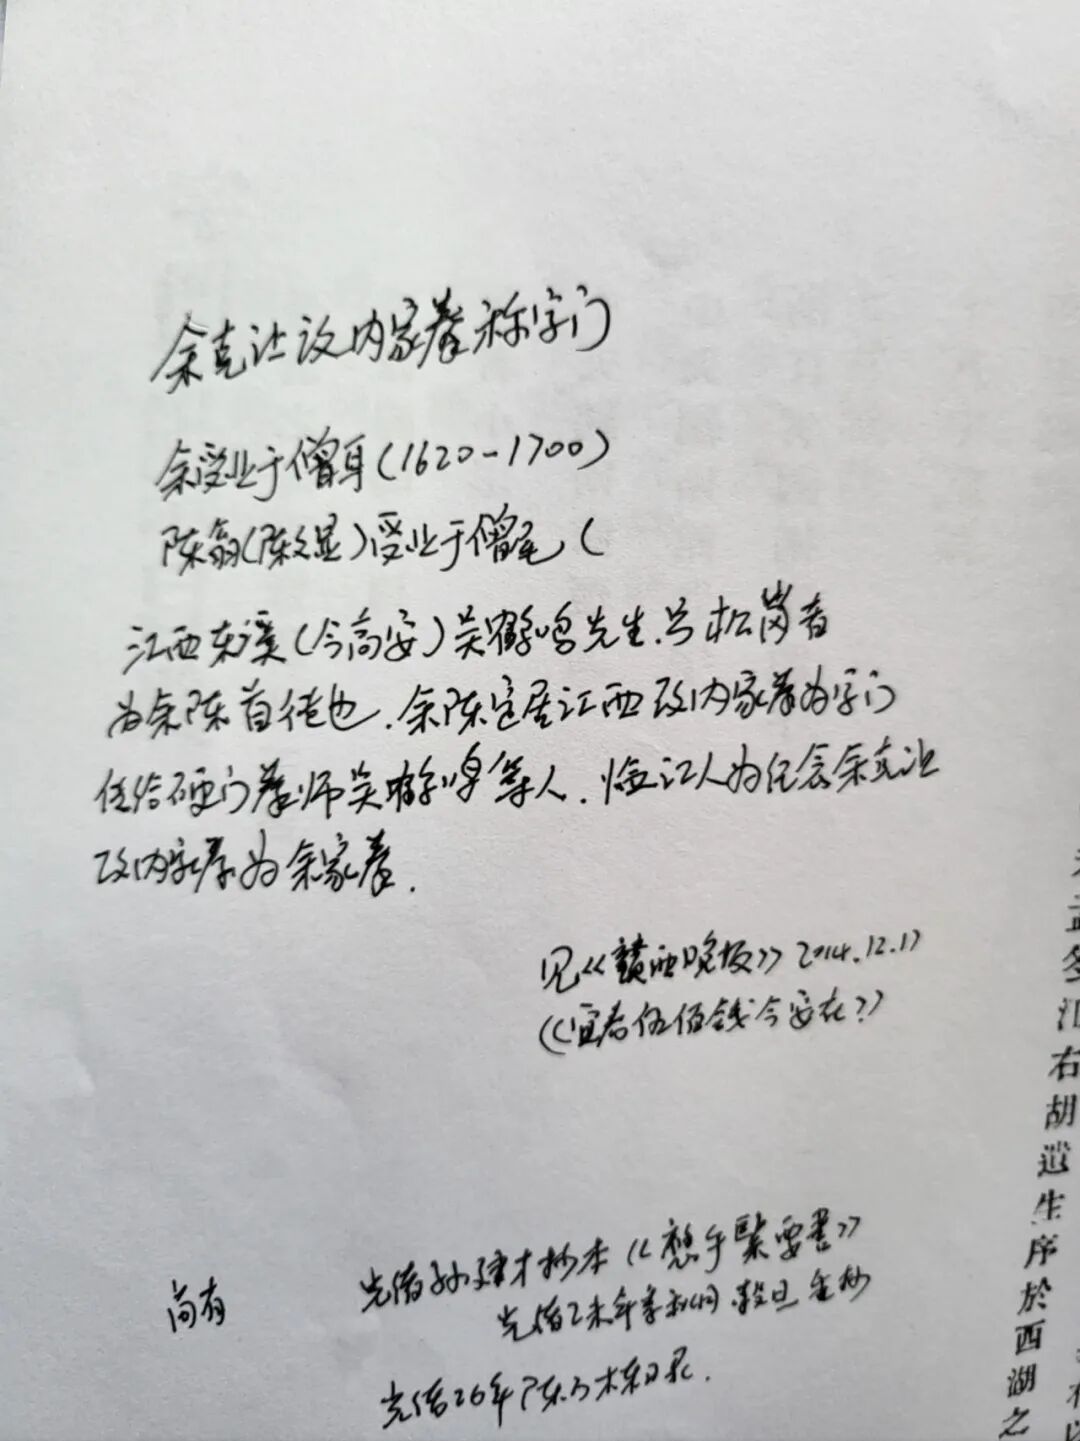 余克让改内家拳称字门
余受业于僧耳(1620-1700)
陈翁(陈文显)受业于僧尾(
江西东溪(今高安)吴鹤鸣先生.号松岗者
为余陈首徒也.余陈定居江西改内家拳为字门
传给硬门拳师吴鹤鸣等人.临江人为纪念余克让
改内家拳为余家拳.
见《赣西晚报》2014.12.17
《宜春伍佰钱今安在?》
尚有
光绪孙建才抄本《 手紧要书》
光绪乙未年季秋月 穀旦 抄
光绪26年陈 目录.
江右胡遊生序於西湖之